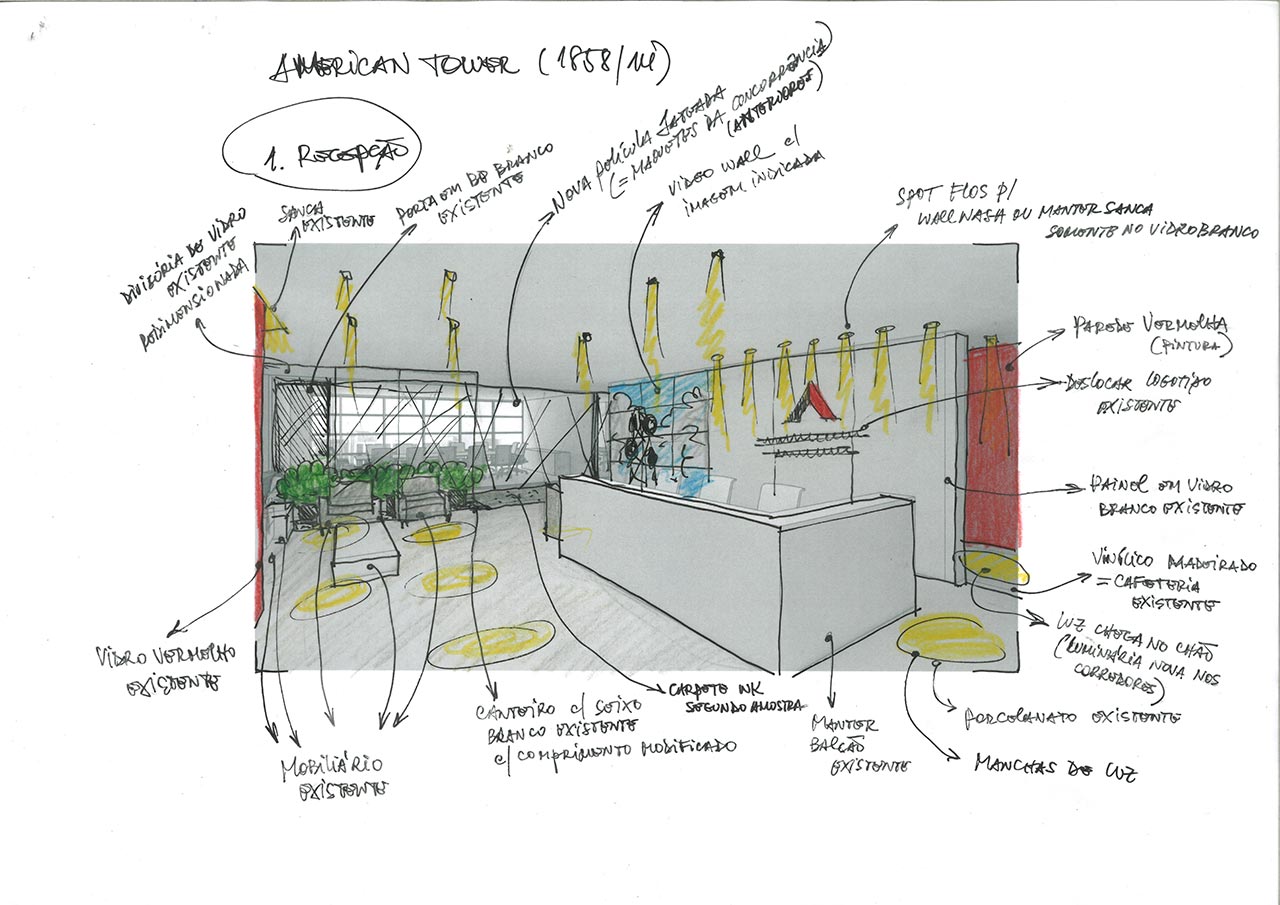 AMERICAN TOWER (1858/14)
1. RECEPÇÃO
DIVISÓRIA DE VIDRO
EXISTENTE
REDIMENSIONADA
SANCA
EXISTENTE
PORTA EM BP BRANCO
EXISTENTE
NOVA PELÍCULA JATEADA
(= MAQUETES DA CONCORRÊNCIA)
(ANTERIORES)
VIDEO WALL C/
IMAGEM INDICADA
SPOT FLOS P/
WALLWASH OU MANTER SANCA
SOMENTE NO VIDRO BRANCO
PAREDE VERMELHA
(PINTURA)
DESLOCAR LOGOTIPO
EXISTENTE
PAINEL EM VIDRO
BRANCO EXISTENTE
VINÍLICO MADEIRADO
= CAFETERIA
EXISTENTE
LUZ CHEGA NO CHÃO
(LUMINÁRIA NOVA NOS
CORREDORES)
PORCELANATO EXISTENTE
MANCHAS DE LUZ
MANTER
BALCÃO
EXISTENTE
CARPETE INK
SEGUNDO AMOSTRA
CANTEIRO C/ SEIXO
BRANCO EXISTENTE
C/ COMPRIMENTO MODIFICADO
MOBILIÁRIO
EXISTENTE
VIDRO VERMELHO
EXISTENTE